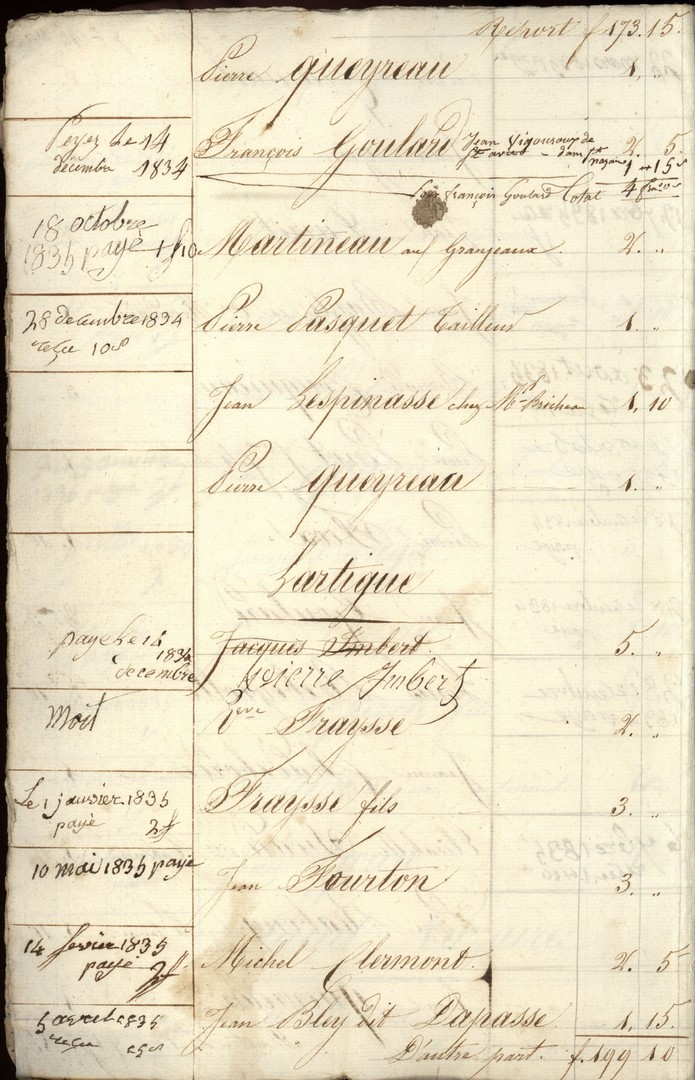 Report f 173. 15.
Pierre Queyreau 1. "
Peyez le 14
décembre 1834
François Goulard Jean Vigouroux de 2. 5
St avit - dans St nazaire 1 - 15s
Pour françois Goulard Total 4 francs
18 octobre
1835 payé 1f 10
Martineau aux Granjeaux. 2. "
28 decembre 1834
reçu 10s
Pierre Pasquet Tailleur 1. "
Jean Lespinasse chez Mr Bricheau 1. 10
Pierre Queyreau 1. "
Lartigue
payé le 14
1834
decembre
Jacques Imbert. 5. "
pierre Imbert
Mort
Veuve Fraysse 2. "
Le 1 janvier 1835
payé 2f
Fraysse fils 3. "
10 mai 1835 payé
Jean Fourton 3. "
14 fevier 1835
payé 2f
Michel Clermont. 2. 5
5 avril 1835
reçu 25s
Jean Bley dit Dapasse. 1. 15.
D'autre part. f. 199 10